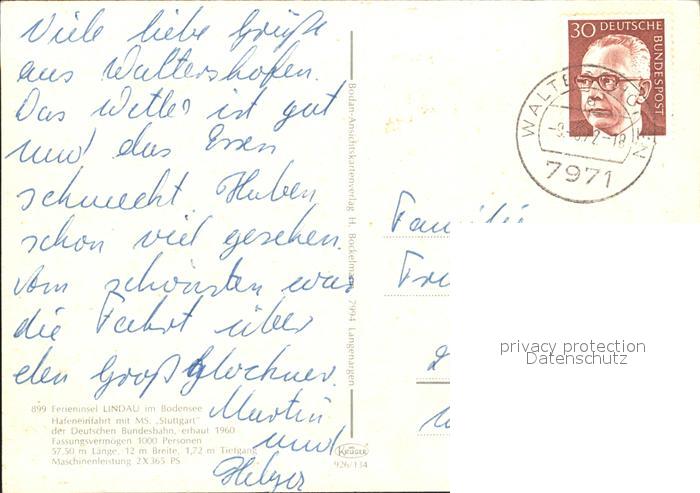 Viele liebe Grüße
aus Waltershofen.
Das Wetter ist gut
und das Essen
schmeckt. Haben
schon viel gesehen.
Am schönsten war
die Fahrt über
den Großglockner.
Martin
und
899 Ferieninsel LINDAU im Bodensee
Hafeneinfahrt mit MS. „Stuttgart"
der Deutschen Bundesbahn, erbaut 1960
Fassungsvermögen 1000 Personen
57,50 m Länge, 12 m Breite, 1,72 m Tiefgang
Maschinenleistung 2X365 PS
Bodan-Ansichtskartenverlag H. Bockelmann, 7994 Langenargen
KRÜGER
926/134
30 DEUTSCHE
BUNDESPOST
7971
Familie
privacy protection
Datenschutz